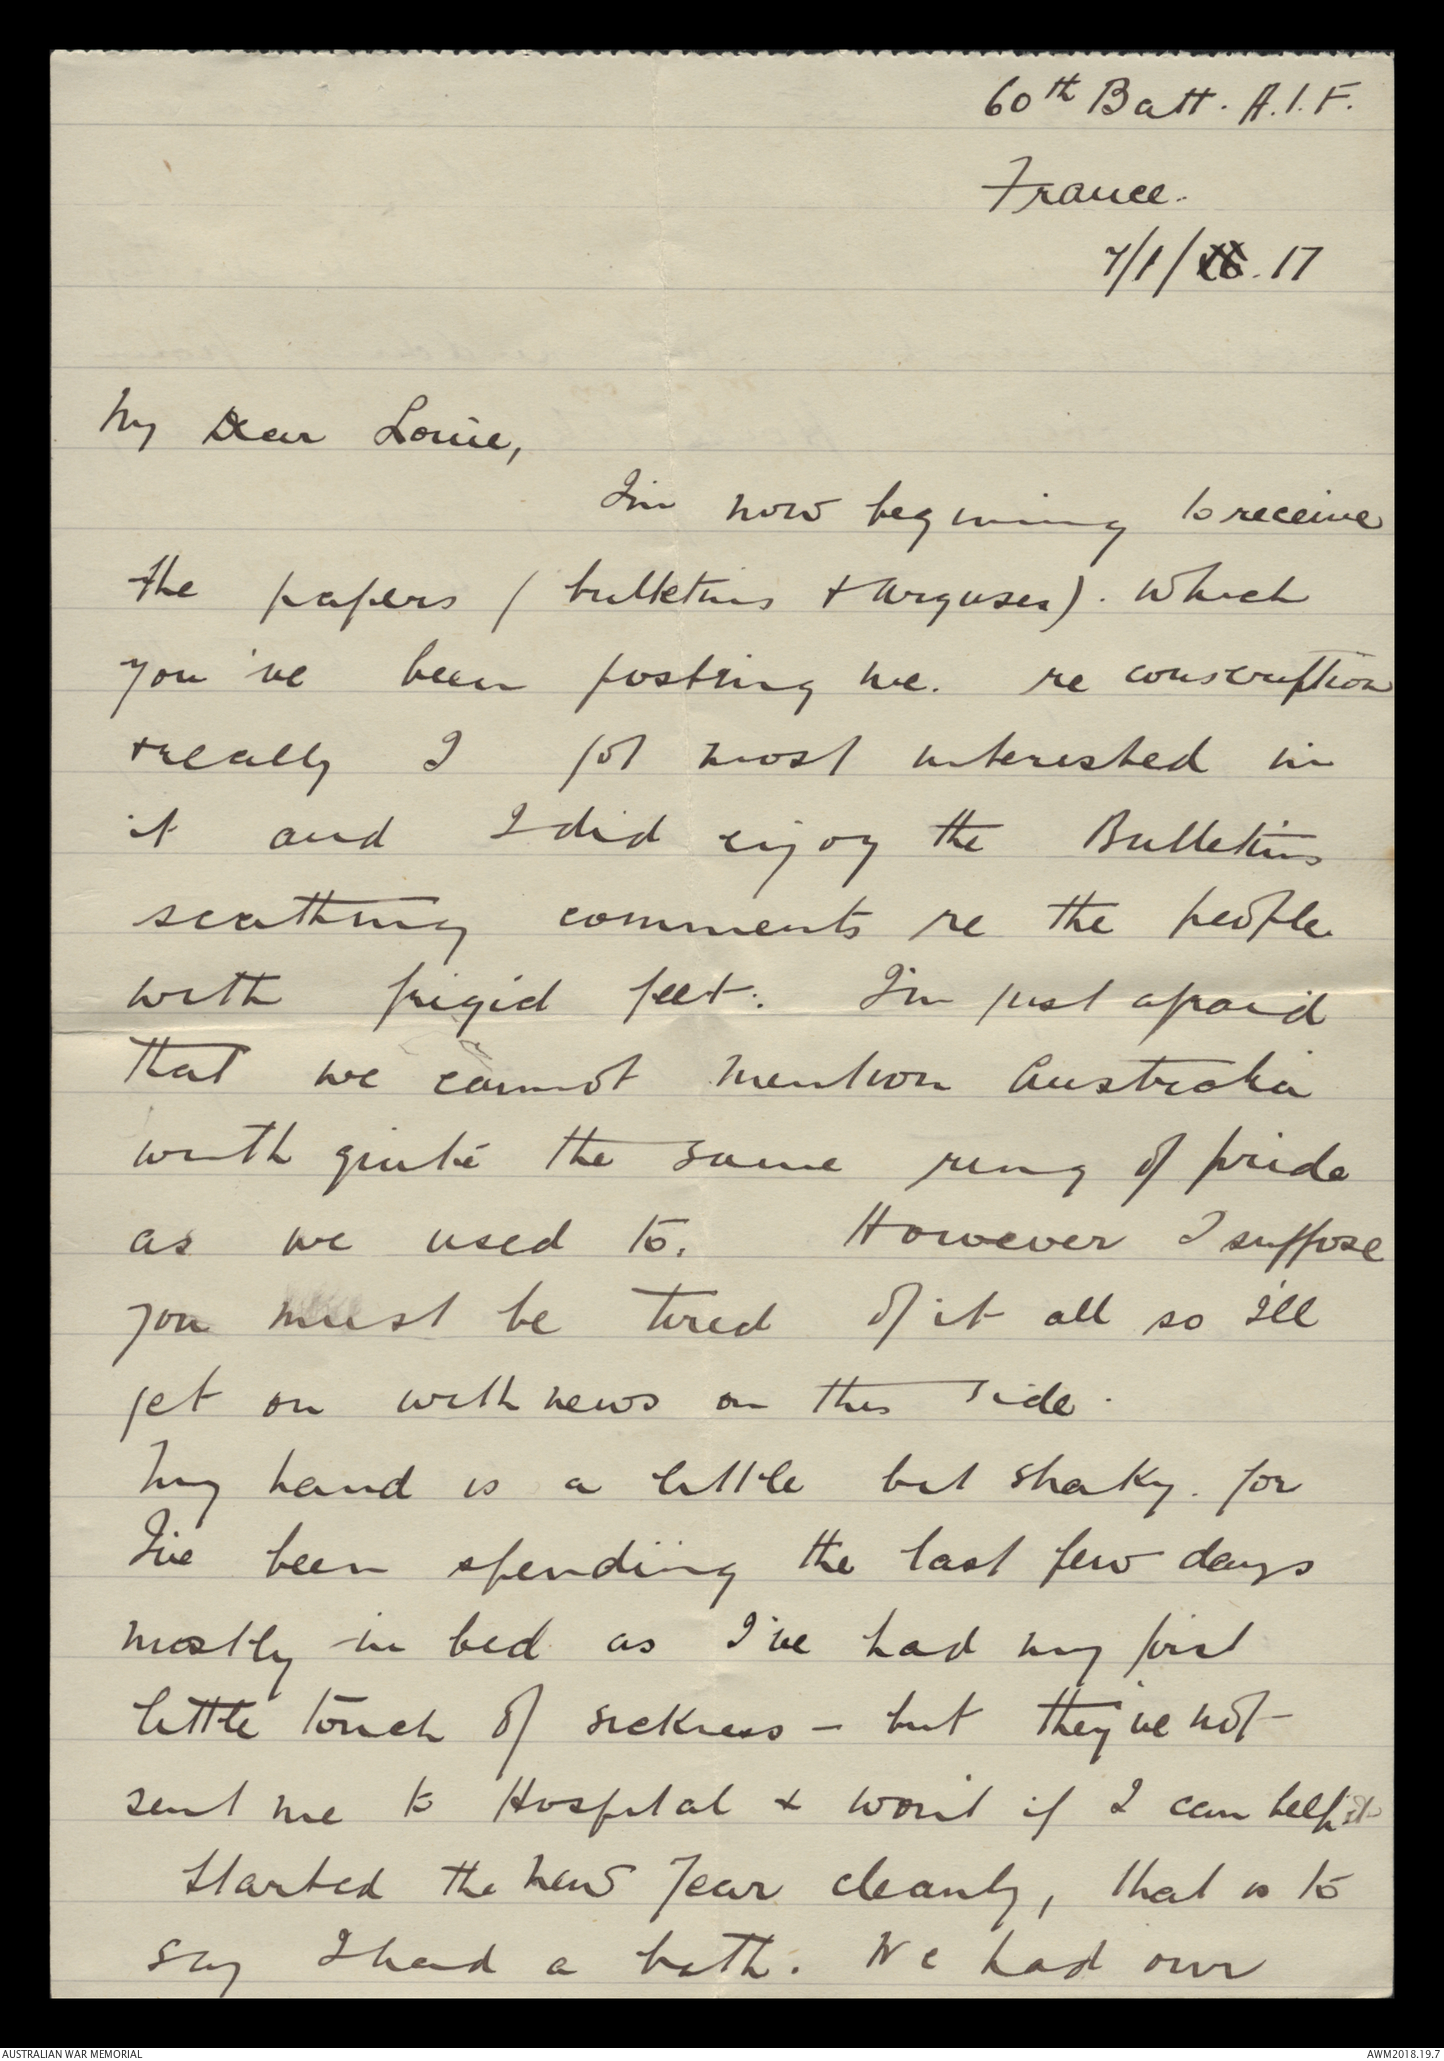 60th Batt. A.I.F.
France.
7/1/16.17
My Dear Louie,
I'm now begining to receive
the papers (bulletins & arguses). which
you've been posting me. re conscription
& really I got most interested in
it and I did enjoy the Bulletins
scathing comments re the people
with frigid feet. I'm just afraid
that we cannot mention Australia
with quite the same ring of pride
as we used to. However I suppose
you must be tired of it all so I'll
get on with news on this side.
My hand is a little bit shaky. for
I've been spending the last few days
mostly in bed as I've had my first
little touch of sickness – but they've not
sent me to Hospital & won't if I can help it
Started the New Year cleanly, that is to
say I had a bath. We had our
AUSTRALIAN WAR MEMORIAL
AWM2018.19.7